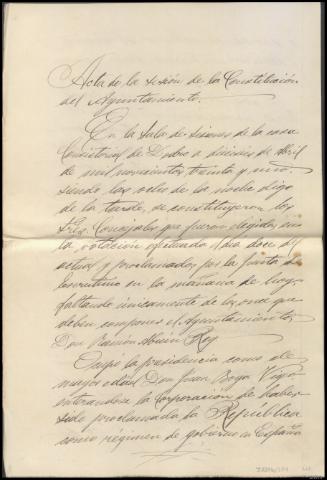 Acta de la sesión de la Constitución
del Ayuntamiento.
En la Sala de sesiones de la casa
Consistorial de Dodro a dieciseis de Abril
de mil novecientos treinta y uno.
siendo las ocho de la noche digo
de la tarde, se constituyeron los
Sres. Concejales que fueron elegidos en
la votación efectuada el dia doce del
actual y proclamados por la Junta de
Escrutinio en la mañana de hoy,
faltando unicamente de los once que
deben componer el Ayuntamiento,
Don Ramón Abuin Rey
Ocupó la presidencia como de
mayor edad Don Juan Boga
enterandose la Corporación de haber
sido proclamada la Republica
como régimen de gobierno en España